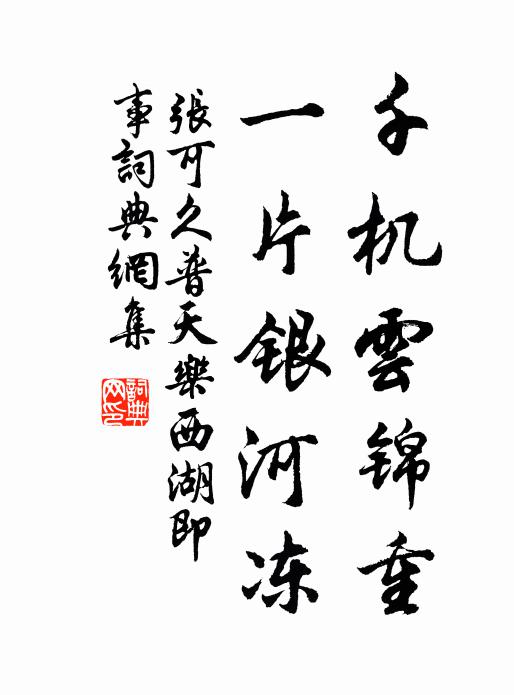 千机雲锦重
一片银河冻
張可久普天樂西湖即
事詞典網集
詞典網印